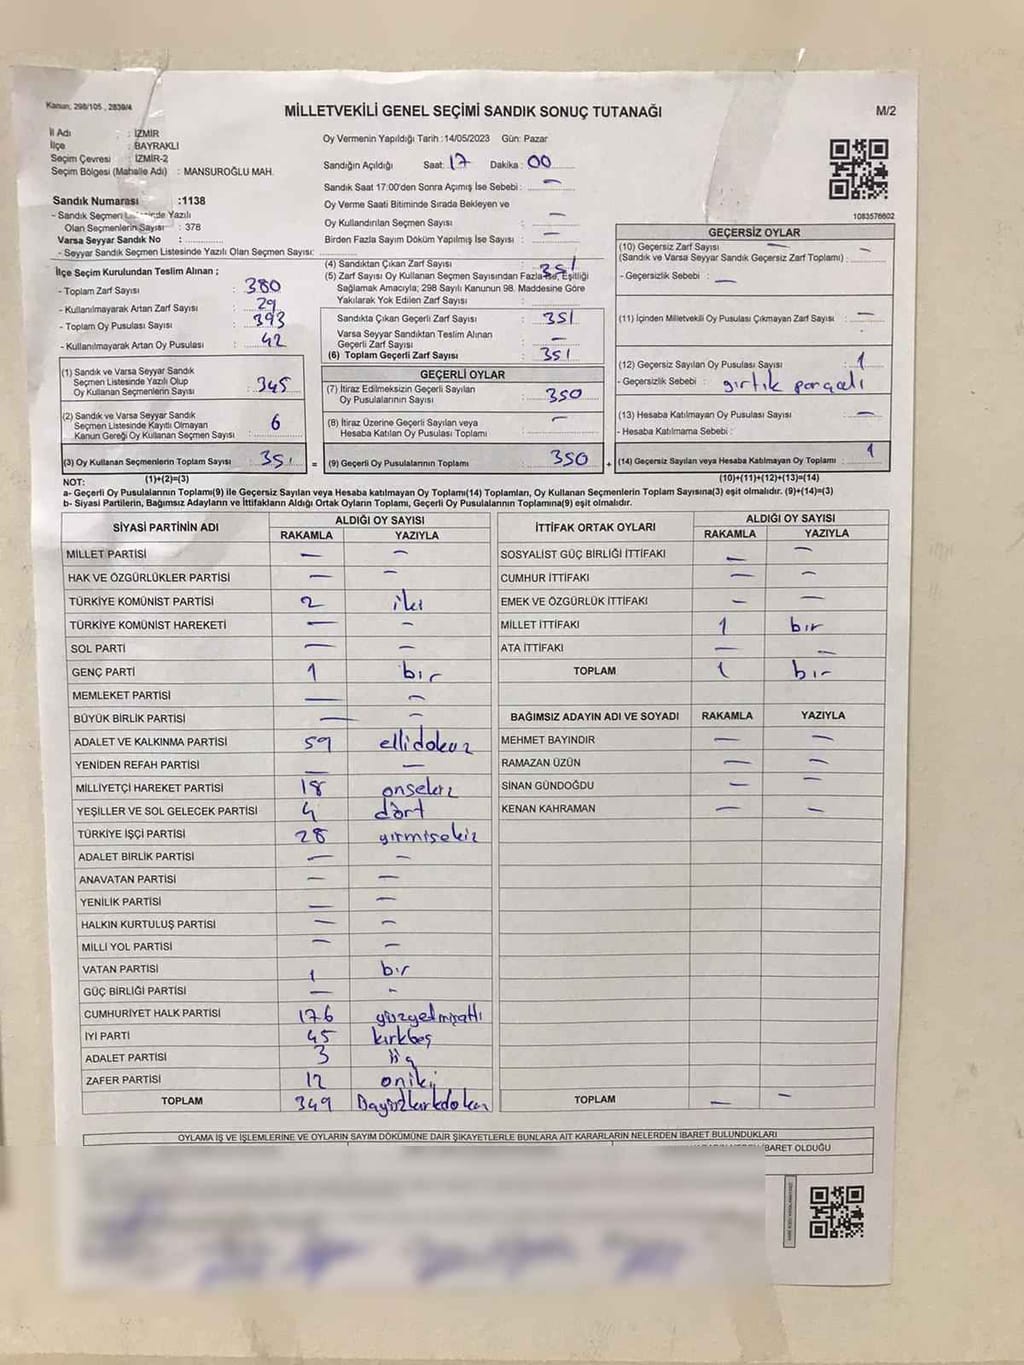 Kanun, 298/105 , 2839/4
MİLLETVEKİLİ GENEL SEÇİMİ SANDIK SONUÇ TUTANAĞI
M/2
İl Adı : İZMİR
İlçe : BAYRAKLI
Seçim Çevresi : İZMİR-2
Seçim Bölgesi (Mahalle Adı) : MANSUROĞLU MAH.
Oy Vermenin Yapıldığı Tarih :14/05/2023 Gün: Pazar
Sandığın Açıldığı Saat: 17 Dakika: 00
Sandık Saat 17:00'den Sonra Açımış İse Sebebi : —
Oy Verme Saati Bitiminde Sırada Bekleyen ve
Oy Kullandırılan Seçmen Sayısı : —
Birden Fazla Sayım Döküm Yapılmış İse Sayısı : —
1083576602
Sandık Numarası :1138
- Sandık Seçmen Listesinde Yazılı
Olan Seçmenlerin Sayısı : 378
Varsa Seyyar Sandık No :
- Seyyar Sandık Seçmen Listesinde Yazılı Olan Seçmen Sayısı:
İlçe Seçim Kurulundan Teslim Alınan ;
- Toplam Zarf Sayısı : 380
- Kullanılmayarak Artan Zarf Sayısı : 29
- Toplam Oy Pusulası Sayısı : 393
- Kullanılmayarak Artan Oy Pusulası : 42
(1) Sandık ve Varsa Seyyar Sandık
Seçmen Listesinde Yazılı Olup
Oy Kullanan Seçmenlerin Sayısı : 345
(2) Sandık ve Varsa Seyyar Sandık
Seçmen Listesinde Kayıtlı Olmayan
Kanun Gereği Oy Kullanan Seçmen Sayısı : 6
(3) Oy Kullanan Seçmenlerin Toplam Sayısı : 351
(1)+(2)=(3)
(4) Sandıktan Çıkan Zarf Sayısı : 351
(5) Zarf Sayısı Oy Kullanan Seçmen Sayısından Fazla ise, Eşitliği
Sağlamak Amacıyla; 298 Sayılı Kanunun 98. Maddesine Göre
Yakılarak Yok Edilen Zarf Sayısı :
Sandıkta Çıkan Geçerli Zarf Sayısı : 351
Varsa Seyyar Sandıktan Teslim Alınan
Geçerli Zarf Sayısı : —
(6) Toplam Geçerli Zarf Sayısı : 351
GEÇERLİ OYLAR
(7) İtiraz Edilmeksizin Geçerli Sayılan
Oy Pusulalarının Sayısı : 350
(8) İtiraz Üzerine Geçerli Sayılan veya
Hesaba Katılan Oy Pusulası Toplamı : —
= (9) Geçerli Oy Pusulalarının Toplamı : 350
GEÇERSİZ OYLAR
(10) Geçersiz Zarf Sayısı —
(Sandık ve Varsa Seyyar Sandık Geçersiz Zarf Toplamı) : —
- Geçersizlik Sebebi : —
(11) İçinden Milletvekili Oy Pusulası Çıkmayan Zarf Sayısı : —
(12) Geçersiz Sayılan Oy Pusulası Sayısı : 1
- Geçersizlik Sebebi : yırtık parçalı
(13) Hesaba Katılmayan Oy Pusulası Sayısı : —
- Hesaba Katılmama Sebebi :
+ (14) Geçersiz Sayılan veya Hesaba Katılmayan Oy Toplamı : 1
(10)+(11)+(12)+(13)=(14)
NOT:
a- Geçerli Oy Pusulalarının Toplamı(9) ile Geçersiz Sayılan veya Hesaba katılmayan Oy Toplamı(14) Toplamları, Oy Kullanan Seçmenlerin Toplam Sayısına(3) eşit olmalıdır. (9)+(14)=(3)
b- Siyasi Partilerin, Bağımsız Adayların ve İttifakların Aldığı Ortak Oyların Toplamı, Geçerli Oy Pusulalarının Toplamına(9) eşit olmalıdır.
SİYASİ PARTİNİN ADI
ALDIĞI OY SAYISI
RAKAMLA YAZIYLA
MİLLET PARTİSİ — —
HAK VE ÖZGÜRLÜKLER PARTİSİ — —
TÜRKİYE KOMÜNİST PARTİSİ 2 iki
TÜRKİYE KOMÜNİST HAREKETİ — —
SOL PARTİ — —
GENÇ PARTİ 1 bir
MEMLEKET PARTİSİ — —
BÜYÜK BİRLİK PARTİSİ — —
ADALET VE KALKINMA PARTİSİ 59 ellidokuz
YENİDEN REFAH PARTİSİ — —
MİLLİYETÇİ HAREKET PARTİSİ 18 onsekiz
YEŞİLLER VE SOL GELECEK PARTİSİ 4 dört
TÜRKİYE İŞÇİ PARTİSİ 28 yirmisekiz
ADALET BİRLİK PARTİSİ — —
ANAVATAN PARTİSİ — —
YENİLİK PARTİSİ — —
HALKIN KURTULUŞ PARTİSİ — —
MİLLİ YOL PARTİSİ — —
VATAN PARTİSİ 1 bir
GÜÇ BİRLİĞİ PARTİSİ — -
CUMHURİYET HALK PARTİSİ 176 yüzyetmişaltı
İYİ PARTİ 45 kırkbeş
ADALET PARTİSİ 3 üç
ZAFER PARTİSİ 12 oniki
TOPLAM 349
İTTİFAK ORTAK OYLARI
ALDIĞI OY SAYISI
RAKAMLA YAZIYLA
SOSYALİST GÜÇ BİRLİĞİ İTTİFAKI — —
CUMHUR İTTİFAKI — —
EMEK VE ÖZGÜRLÜK İTTİFAKI — —
MİLLET İTTİFAKI 1 bir
ATA İTTİFAKI — —
TOPLAM 1 bir
BAĞIMSIZ ADAYIN ADI VE SOYADI RAKAMLA YAZIYLA
MEHMET BAYINDIR — —
RAMAZAN ÜZÜN — —
SİNAN GÜNDOĞDU — —
KENAN KAHRAMAN — —
TOPLAM — —
OYLAMA İŞ VE İŞLEMLERİNE VE OYLARIN SAYIM DÖKÜMÜNE DAİR ŞİKAYETLERLE BUNLARA AİT KARARLARIN NELERDEN İBARET BULUNDUKLARI
İBARET OLDUĞU